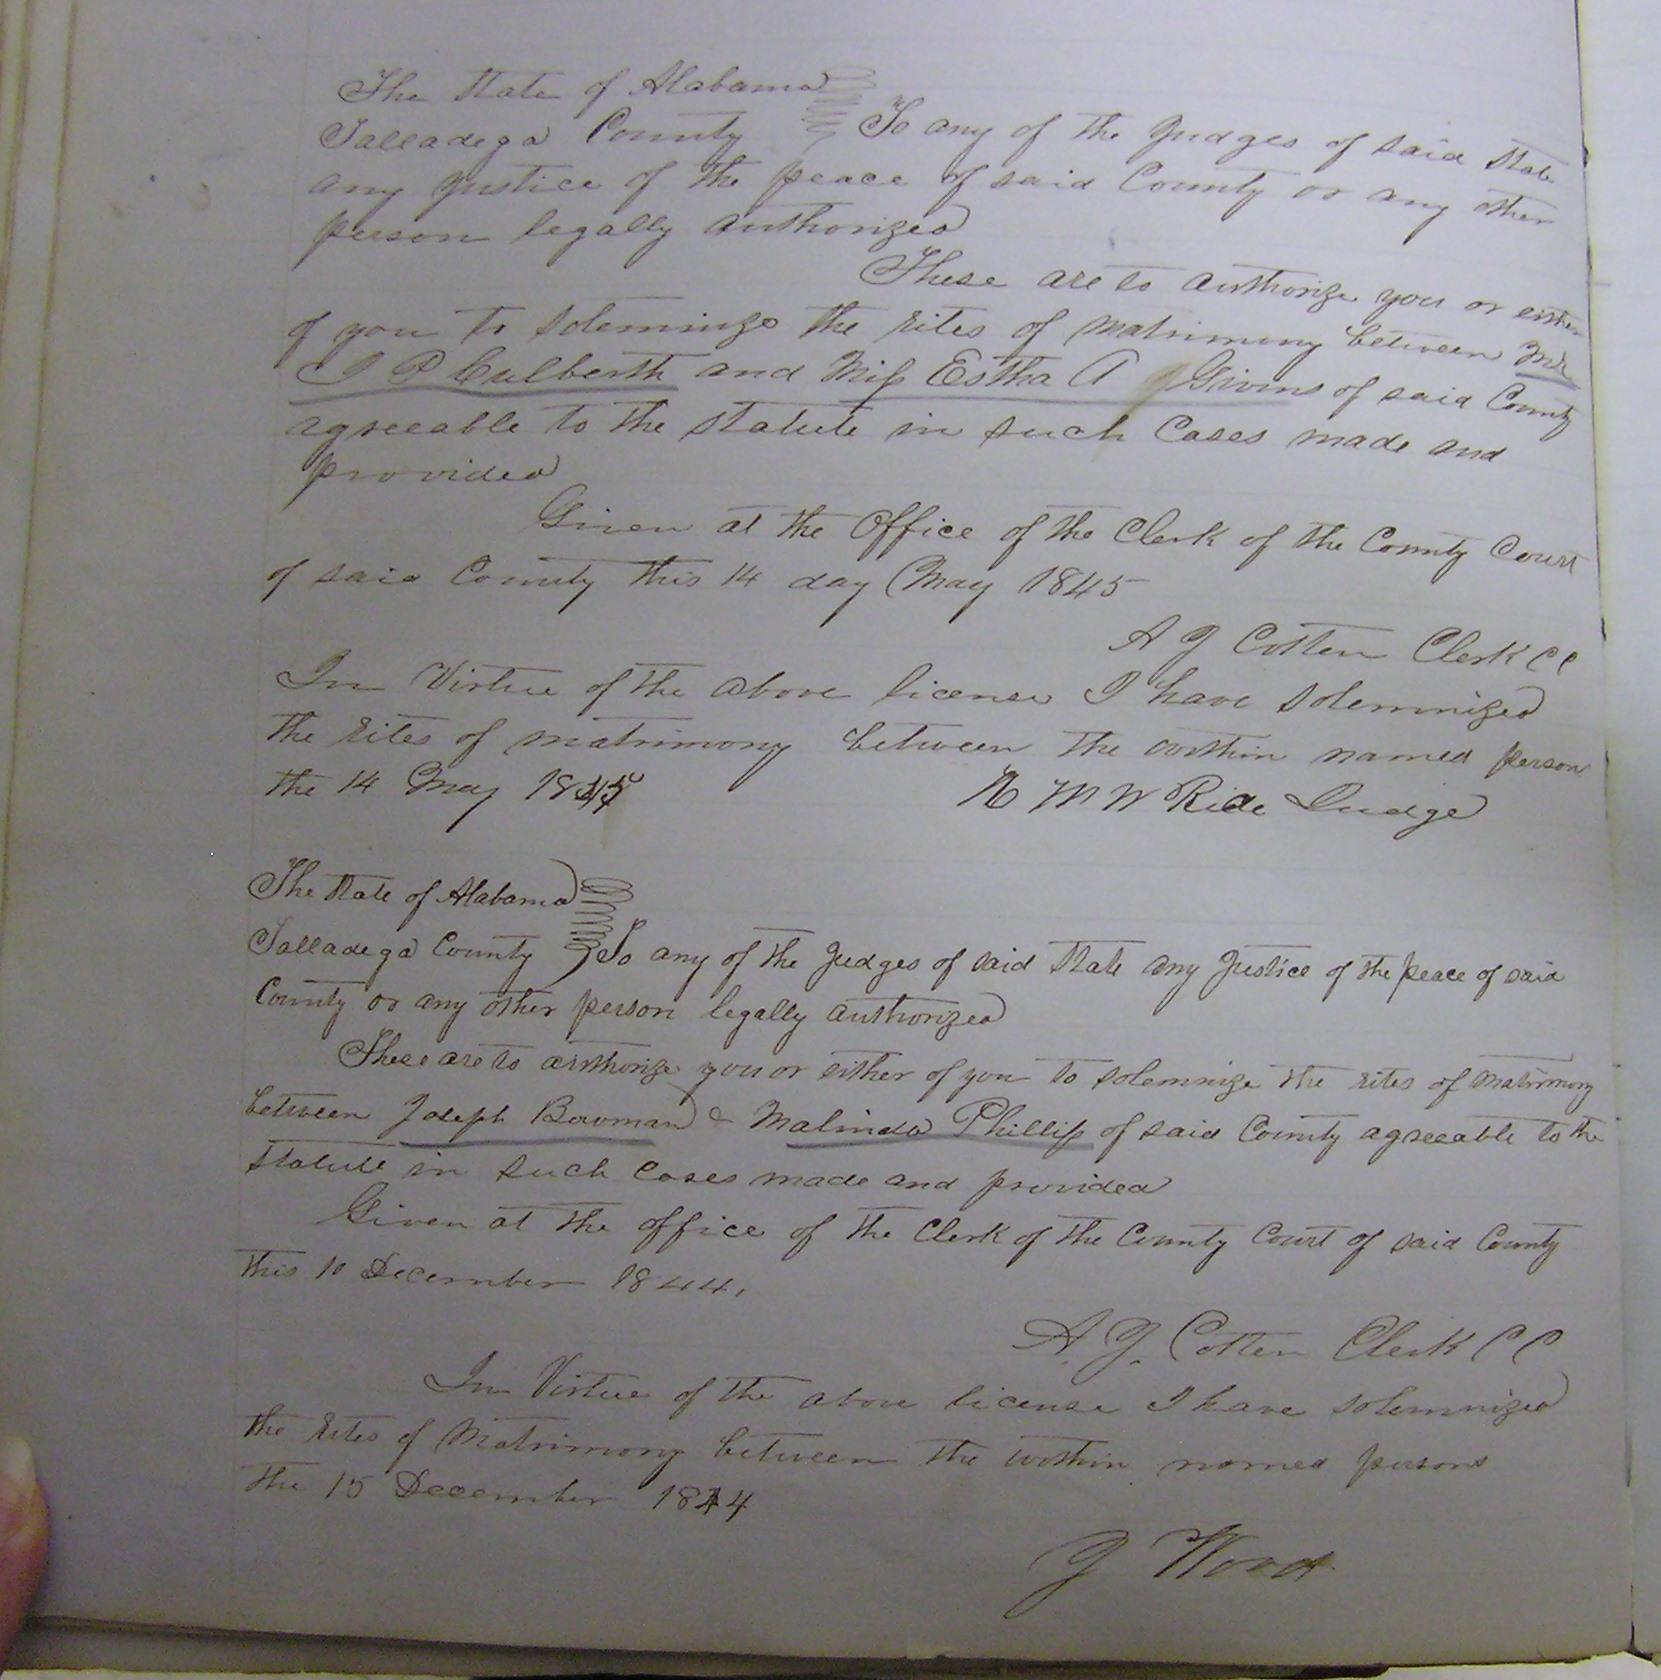 The State of Alabama
Talladega County To any of the Judges of said State
any Justice of the peace of said County or any other
person legally authorized
These are to authorize you or either
of you to solemnize the rites of matrimony between Mr
J P Culberth and Miss Estha A Givins of said County
agreeable to the statute in such Cases made and
provided
Given at the Office of the Clerk of the County Court
of said County this 14 day May 1845
A J Cotten Clerk CC
In Virtue of the above license I have solemnized
the rites of matrimony between the within named person
the 14 May 1845
M W Judge
The State of Alabama
Talladega County To any of the Judges of said State any Justice of the peace of said
County or any other person legally authorized
These are to authorize you or either of you to solemnize the rites of Matrimony
between Joseph Bowman & Malinda Phillips of said County agreeable to the
statute in such Cases made and provided
Given at the office of the Clerk of the County Court of said County
this 10 December 1844.
A. J. Cotten Clerk CC
In Virtue of the above license I have solemnized
the rites of Matrimony between the within named persons
the 15 December 1844
J Wood